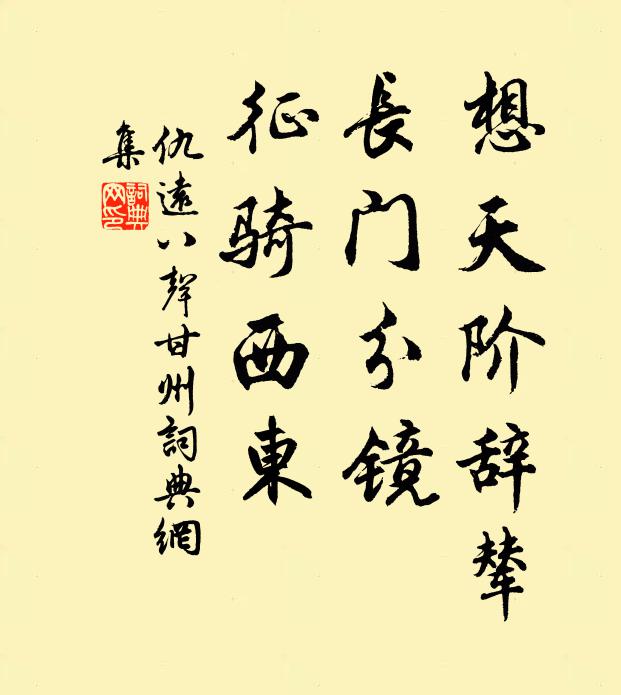 想天阶辞辇
長门分镜
征骑西東
仇遠八聲甘州詞典網
集
詞典網印